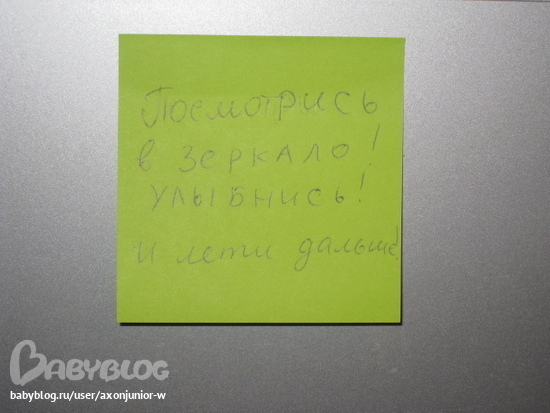 Посмотрись
в зеркало!
улыбнись!
и лети дальше!
BABYBLOG
babyblog.ru/user/axonjunior-w